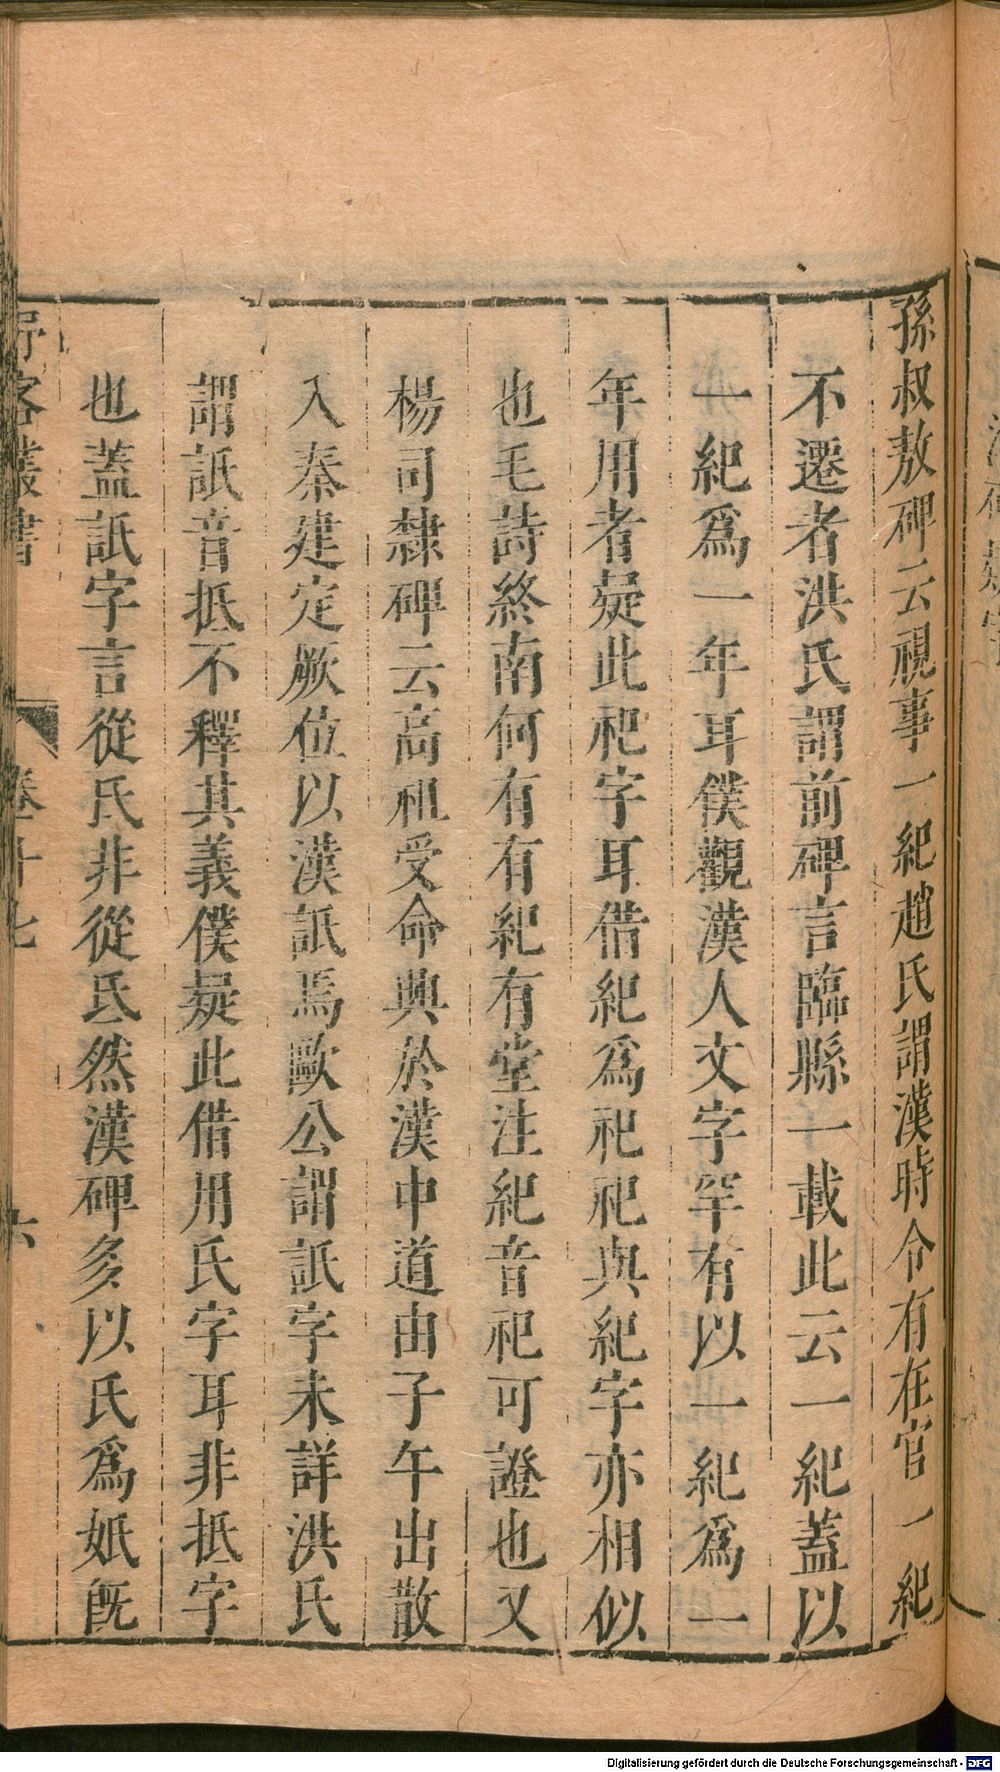 孫叔敖碑云視事一紀趙氏謂漢時令有在官一紀
不遷者洪氏謂前碑言臨縣一載此云一紀蓋以
一紀爲一年耳僕觀漢人文字罕有以一紀爲一
年用者疑此祀字耳借紀爲祀祀與紀字亦相似
也毛詩終南何有有紀有堂注紀音祀可證也又
楊司隸碑云高祖受命興於漢中道由子午出散
入秦建定厥位以漢詆焉歐公謂詆字未詳洪氏
謂詆音抵不釋其義僕疑此借用氏字耳非抵字
也蓋詆字言從氏非從氐然漢碑多以氏爲妷旣
野客叢書 卷十七 六
Digitalisierung gefördert durch die Deutsche Forschungsgemeinschaft - DFG